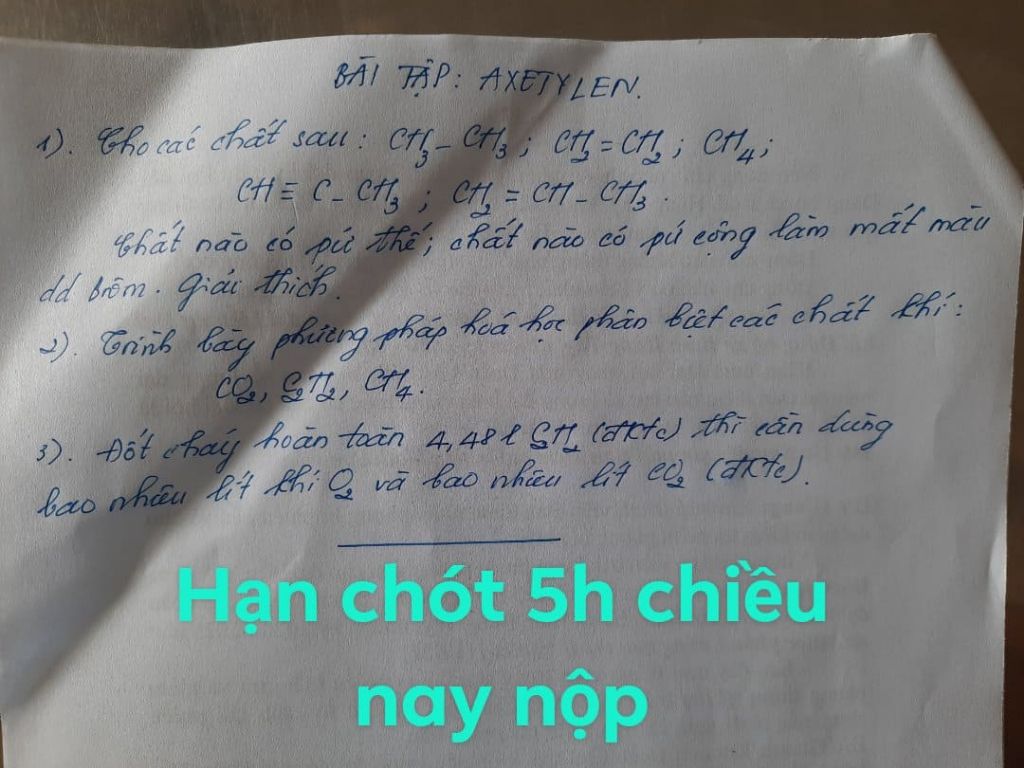 BÀI TẬP: AXETYLEN.
1). Cho các chất sau: CH₃ – CH₃; CH₂ = CH₂; CH₄;
CH ≡ C – CH₃; CH₂ = CH – CH₃.
Chất nào có pứ thế; chất nào có pứ cộng làm mất màu
dd brôm. Giải thích.
2). Trình bày phương pháp hoá học phân biệt các chất khí:
CO₂, C₂H₂, CH₄.
3). Đốt cháy hoàn toàn 4,48 l C₂H₂ (đktc) thì cần dùng
bao nhiêu lít khí O₂ và bao nhiêu lít CO₂ (đktc).
Hạn chót 5h chiều
nay nộp